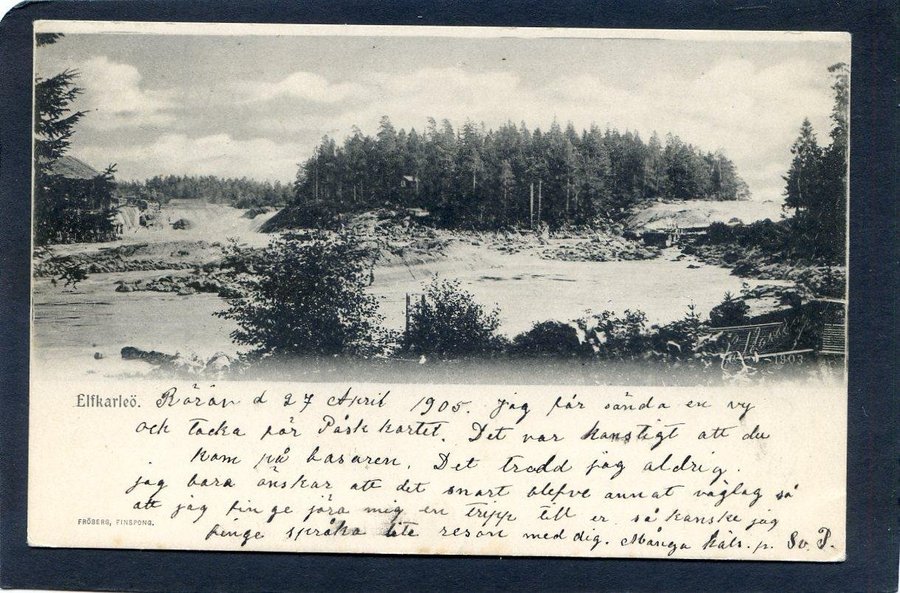 Elfkarleö. Rörån d 27 April 1905. Jag får sända en vy
och tacka för Påskkortet. Det var konstigt att du
kom på basaren. Det trodd jag aldrig.
jag bara önskar att det snart blefve annat väglag så
att jag finge jöra mig en tripp till er så kanske jag
finge språka lite reson med dig. Många häls. p. Sv. P.
FRÖBERG, FINSPONG.
1903